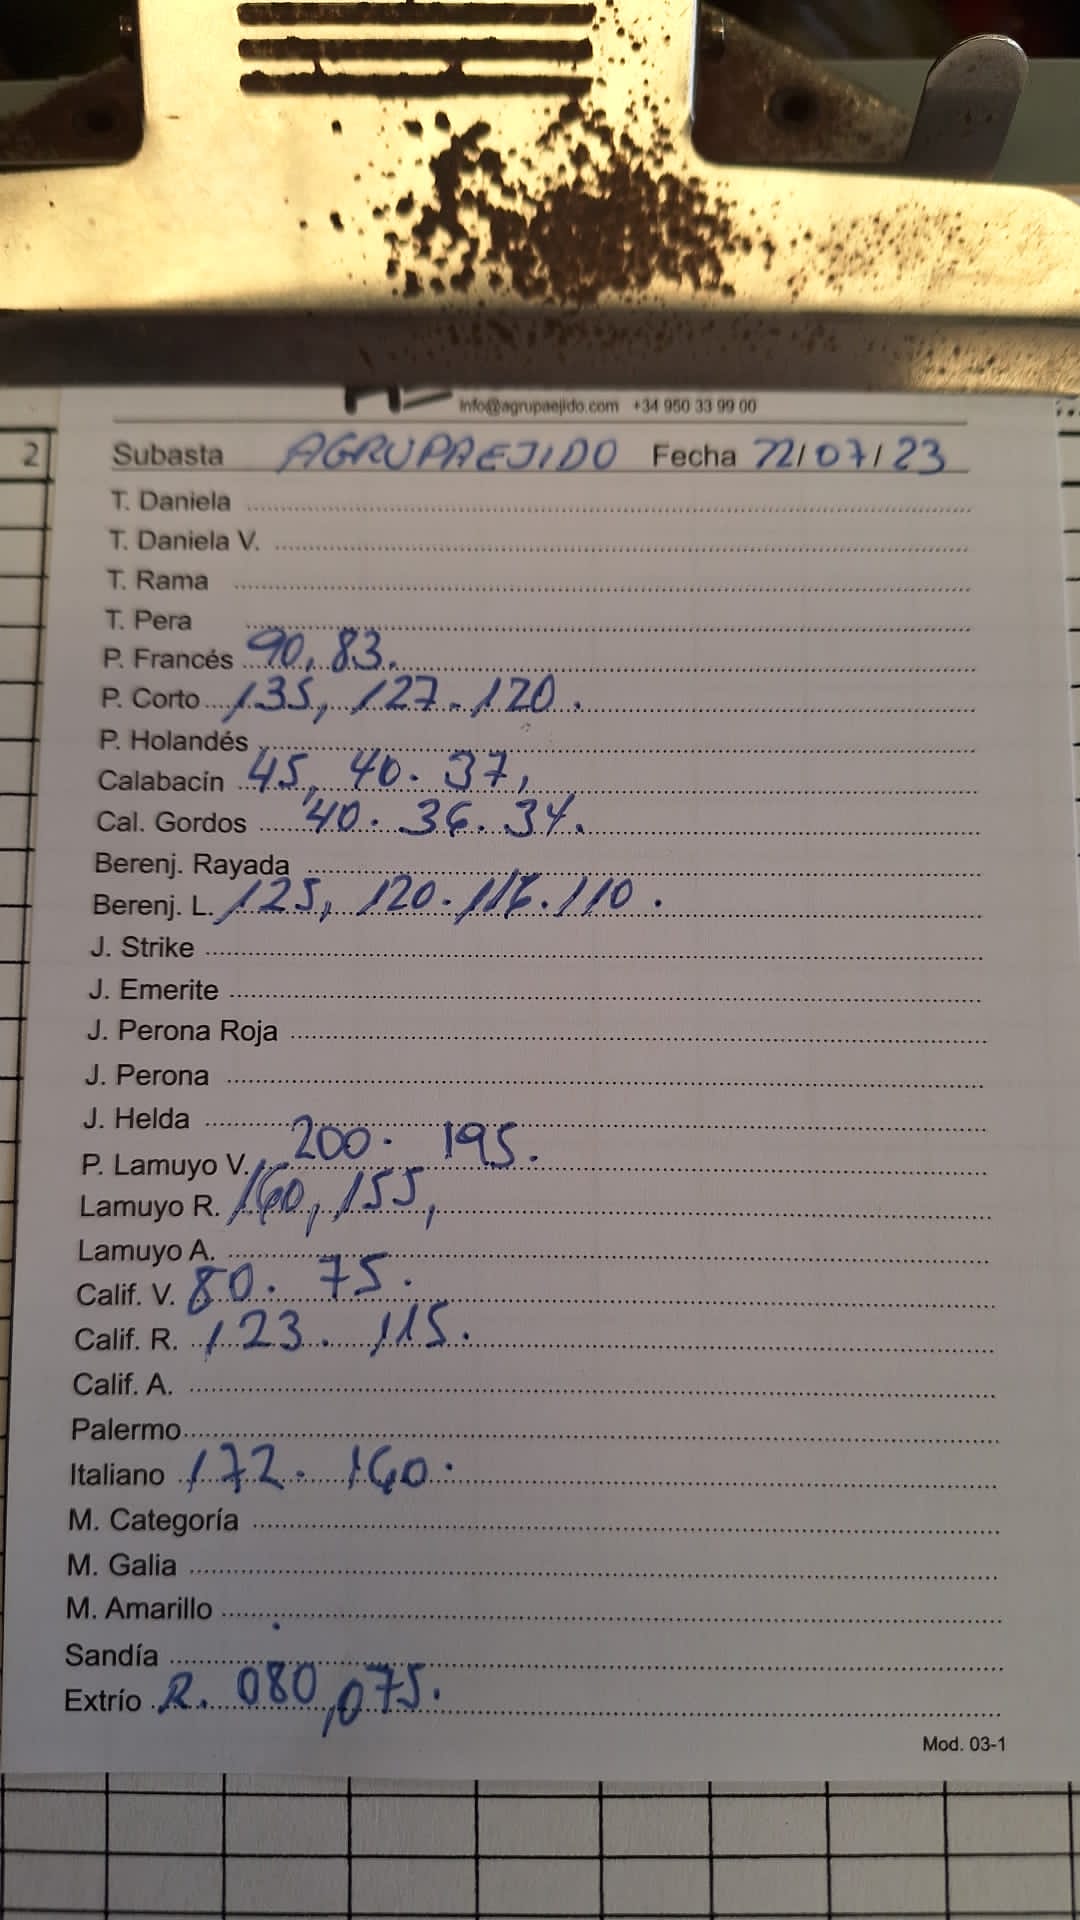 info@agrupaejido.com +34 950 33 99 00
2
Subasta AGRUPAEJIDO Fecha 22/07/23
T. Daniela
T. Daniela V.
T. Rama
T. Pera
P. Francés 90, 83.
P. Corto 135, 127. 120.
P. Holandés
Calabacín 45, 40. 37,
Cal. Gordos 40. 36. 34.
Berenj. Rayada
Berenj. L. 125, 120. 116. 110.
J. Strike
J. Emerite
J. Perona Roja
J. Perona
J. Helda
P. Lamuyo V. 200. 195.
Lamuyo R. 160, 155,
Lamuyo A.
Calif. V. 80. 75.
Calif. R. 123. 115.
Calif. A.
Palermo
Italiano 172. 160.
M. Categoría
M. Galia
M. Amarillo
Sandía
Extrío R. 080, 075.
Mod. 03-1